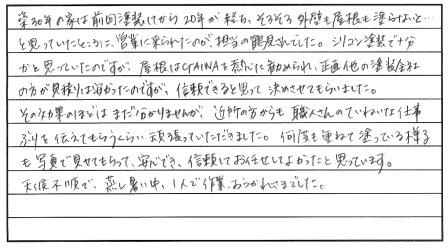 築30年の家は前回塗装してから20年が経ち、そろそろ外壁も屋根も塗らないと…
と思っていたところに、営業に来られたのが担当の鶴見さんでした。シリコン塗装で十分
かと思っていたのですが、屋根はGAINAを熱心に勧められ、正直他の塗装会社
の方が見積りは安かったのですが、信頼できると思って決めさせてもらいました。
その効果のほどはまだ分かりませんが、近所の方からも職人さんのていねいな仕事
ぶりを伝えてもらうくらい頑張っていただきました。何度も重ねて塗っている様子
も写真で見せてもらって、安心でき、信頼してお任せしてよかったと思っています。
天候不順で、蒸し暑い中、1人で作業、おつかれさまでした。